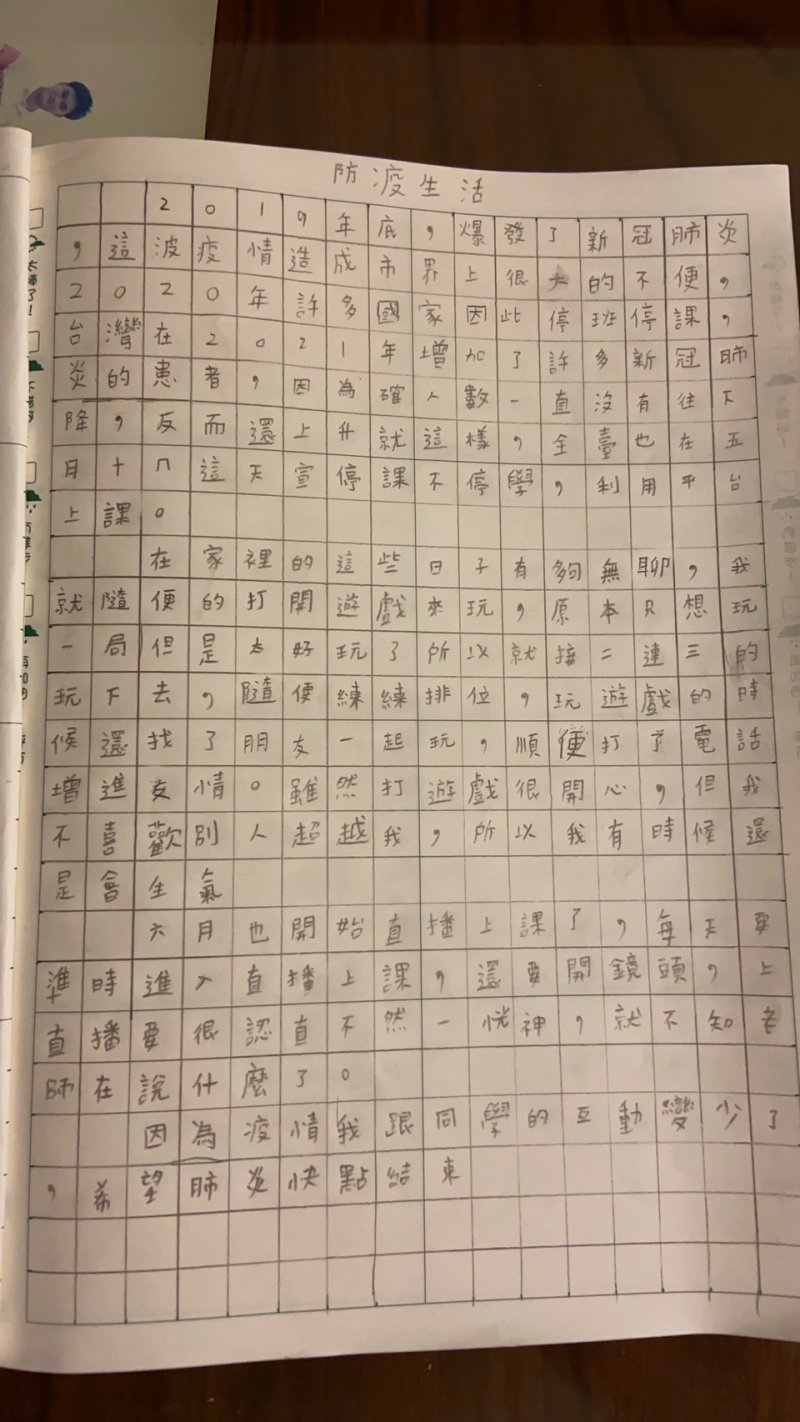 防疫生活
2019年底，爆發了新冠肺炎
，這波疫情造成市界上很大的不便，
2020年許多國家因此停班停課，
台灣在2021年增加了許多新冠肺
炎的患者，因為確人數一直沒有往下
降，反而還上升就這樣，全臺也在五
月十八這天宣停課不停學，利用平台
上課。
在家裡的這些日子有夠無聊，我
就隨便的打開遊戲來玩，原本只想玩
一局但是太好玩了所以就接二連三的
玩下去，隨便練練排位，玩遊戲的時
候還找了朋友一起玩，順便打了電話
增進友情。雖然打遊戲很開心，但我
不喜歡別人超越我，所以我有時候還
是會生氣
六月也開始直播上課了，每天要
準時進入直播上課，還要開鏡頭，上
直播要很認直不然一恍神，就不知老
師在說什麼了。
因為疫情我跟同學的互動變少了
，希望肺炎快點結束